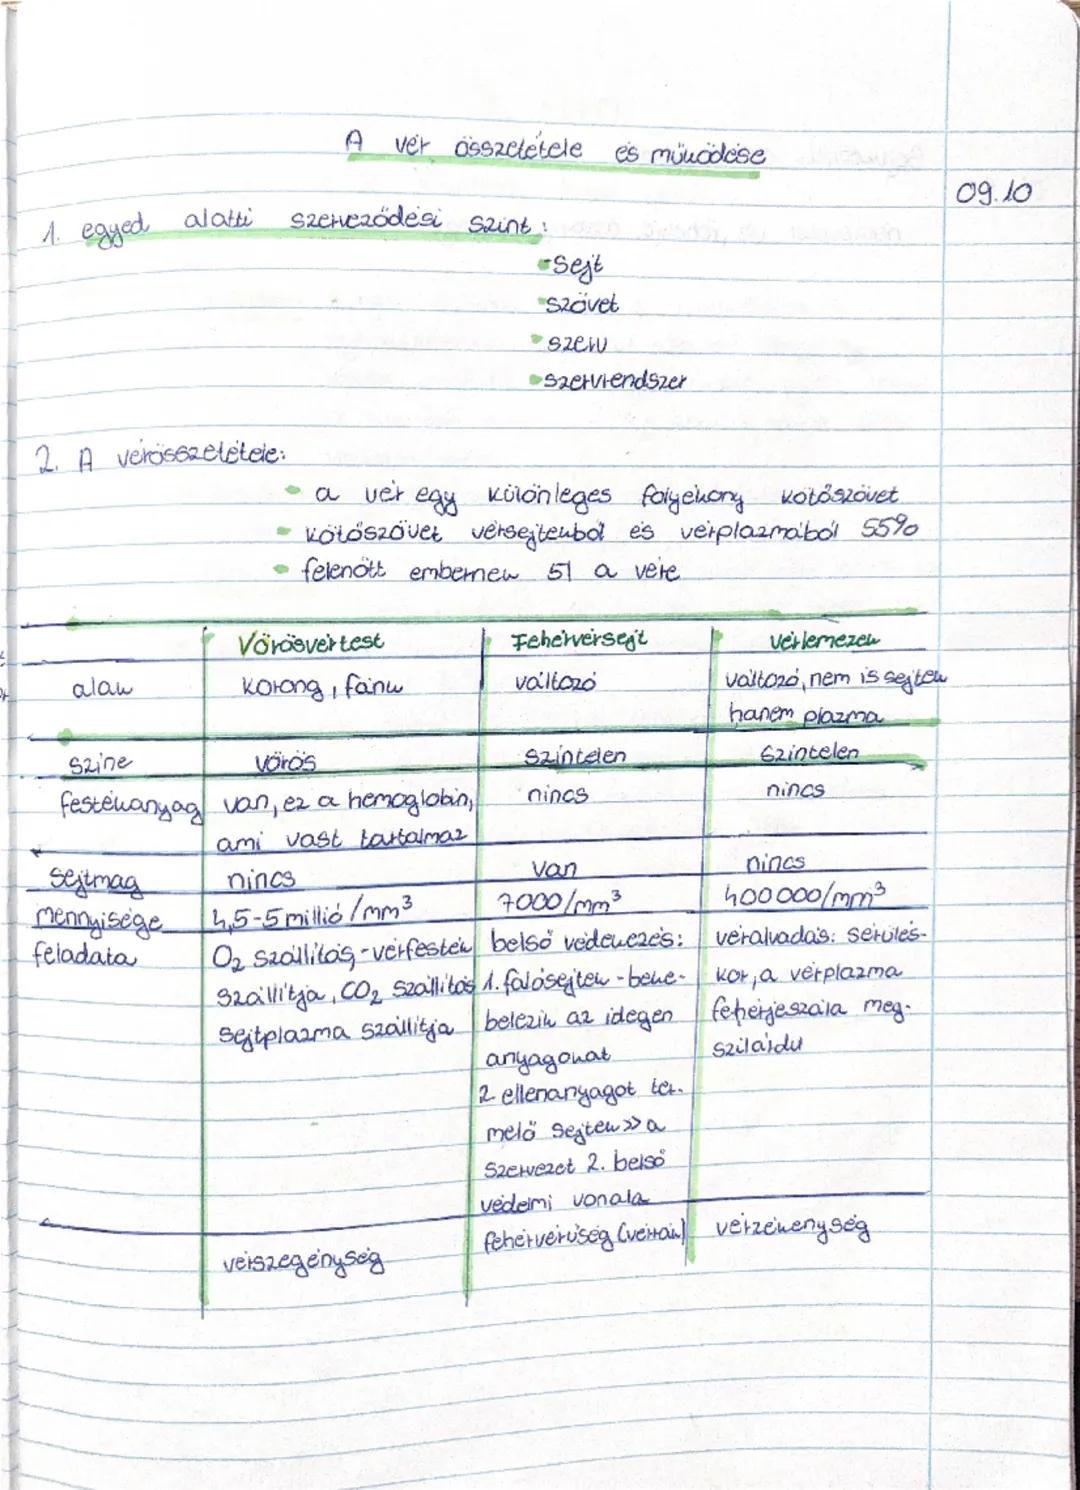 A vér összetétele és működése
09.10
1. egyed alatti szerveződési szint:
sejt
szövet
szerv
szervrendszer
2. A vérösszetétele:
a vér egy különleges folyékony kötőszövet
kötőszövet vérsejtekből és vérplazmából 55%
felenőtt embernek 5l a vére
Vörösvértest Fehérvérsejt vérlemezek
alak korong, fánk változó változó, nem is sejtek
hanem plazma
színe vörös színtelen színtelen
festékanyag van, ez a hemoglobin, nincs nincs
ami vast tartalmaz
sejtmag nincs van nincs
mennyisége 4,5-5 millió/mm³ 7000/mm³ 400000/mm³
feladata O₂ szállítás-vérfesték belső védekezés: véralvadás: sérülés-
szállítja, CO₂ szállítás 1. falósejtek - beke- kor, a vérplazma
sejtplazma szállítja belezik az idegen fehérjeszála meg-
anyagokat szilárdul
2 ellenanyagot ter-
melő sejtek >> a
szervezet 2. belső
védelmi vonala
vérszegénység fehérvérűség (vérrák) vérzékenység